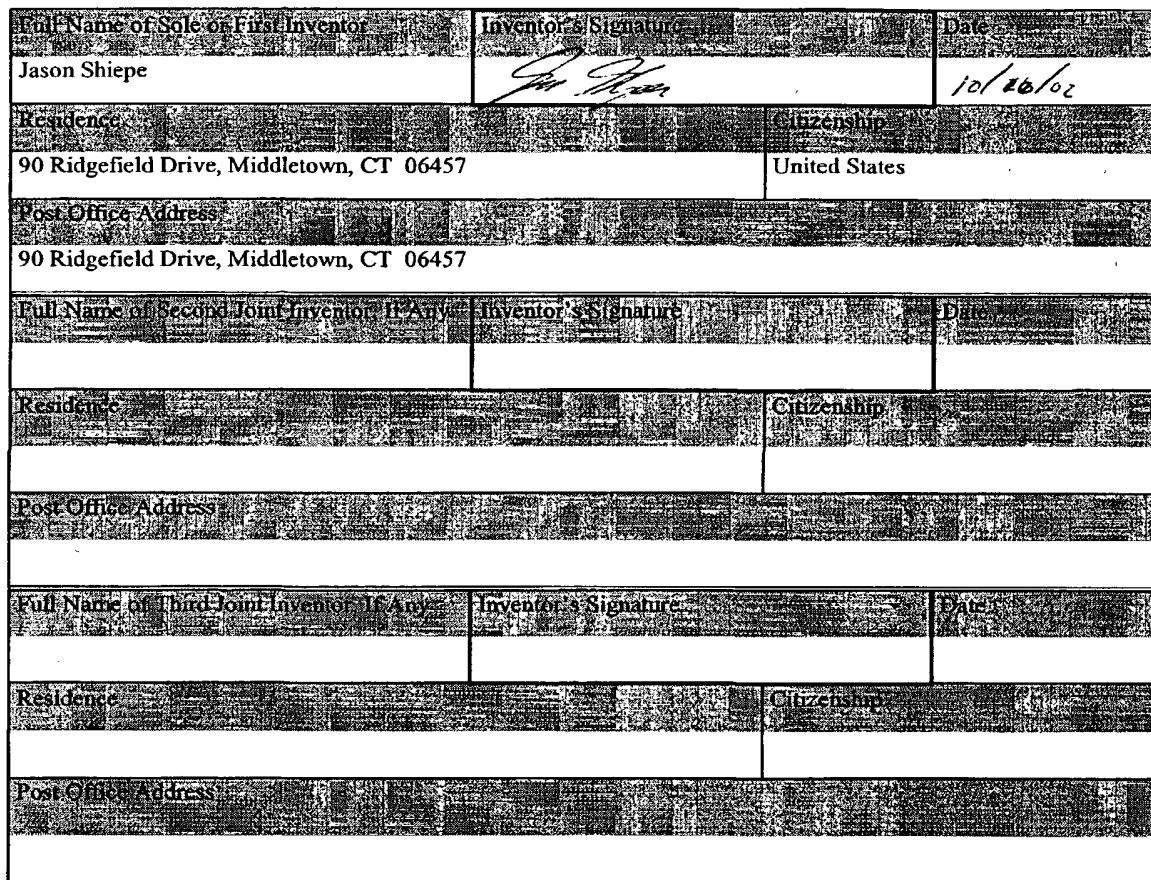 Full Name of Sole or First Inventor Inventor's Signature Date
Jason Shiepe 10/ /02
Residence Citizenship
90 Ridgefield Drive, Middletown, CT 06457 United States
Post Office Address
90 Ridgefield Drive, Middletown, CT 06457
Full Name of Second Joint Inventor, If Any Inventor's Signature Date
Residence Citizenship
Post Office Address
Full Name of Third Joint Inventor, If Any Inventor's Signature Date
Residence Citizenship
Post Office Address